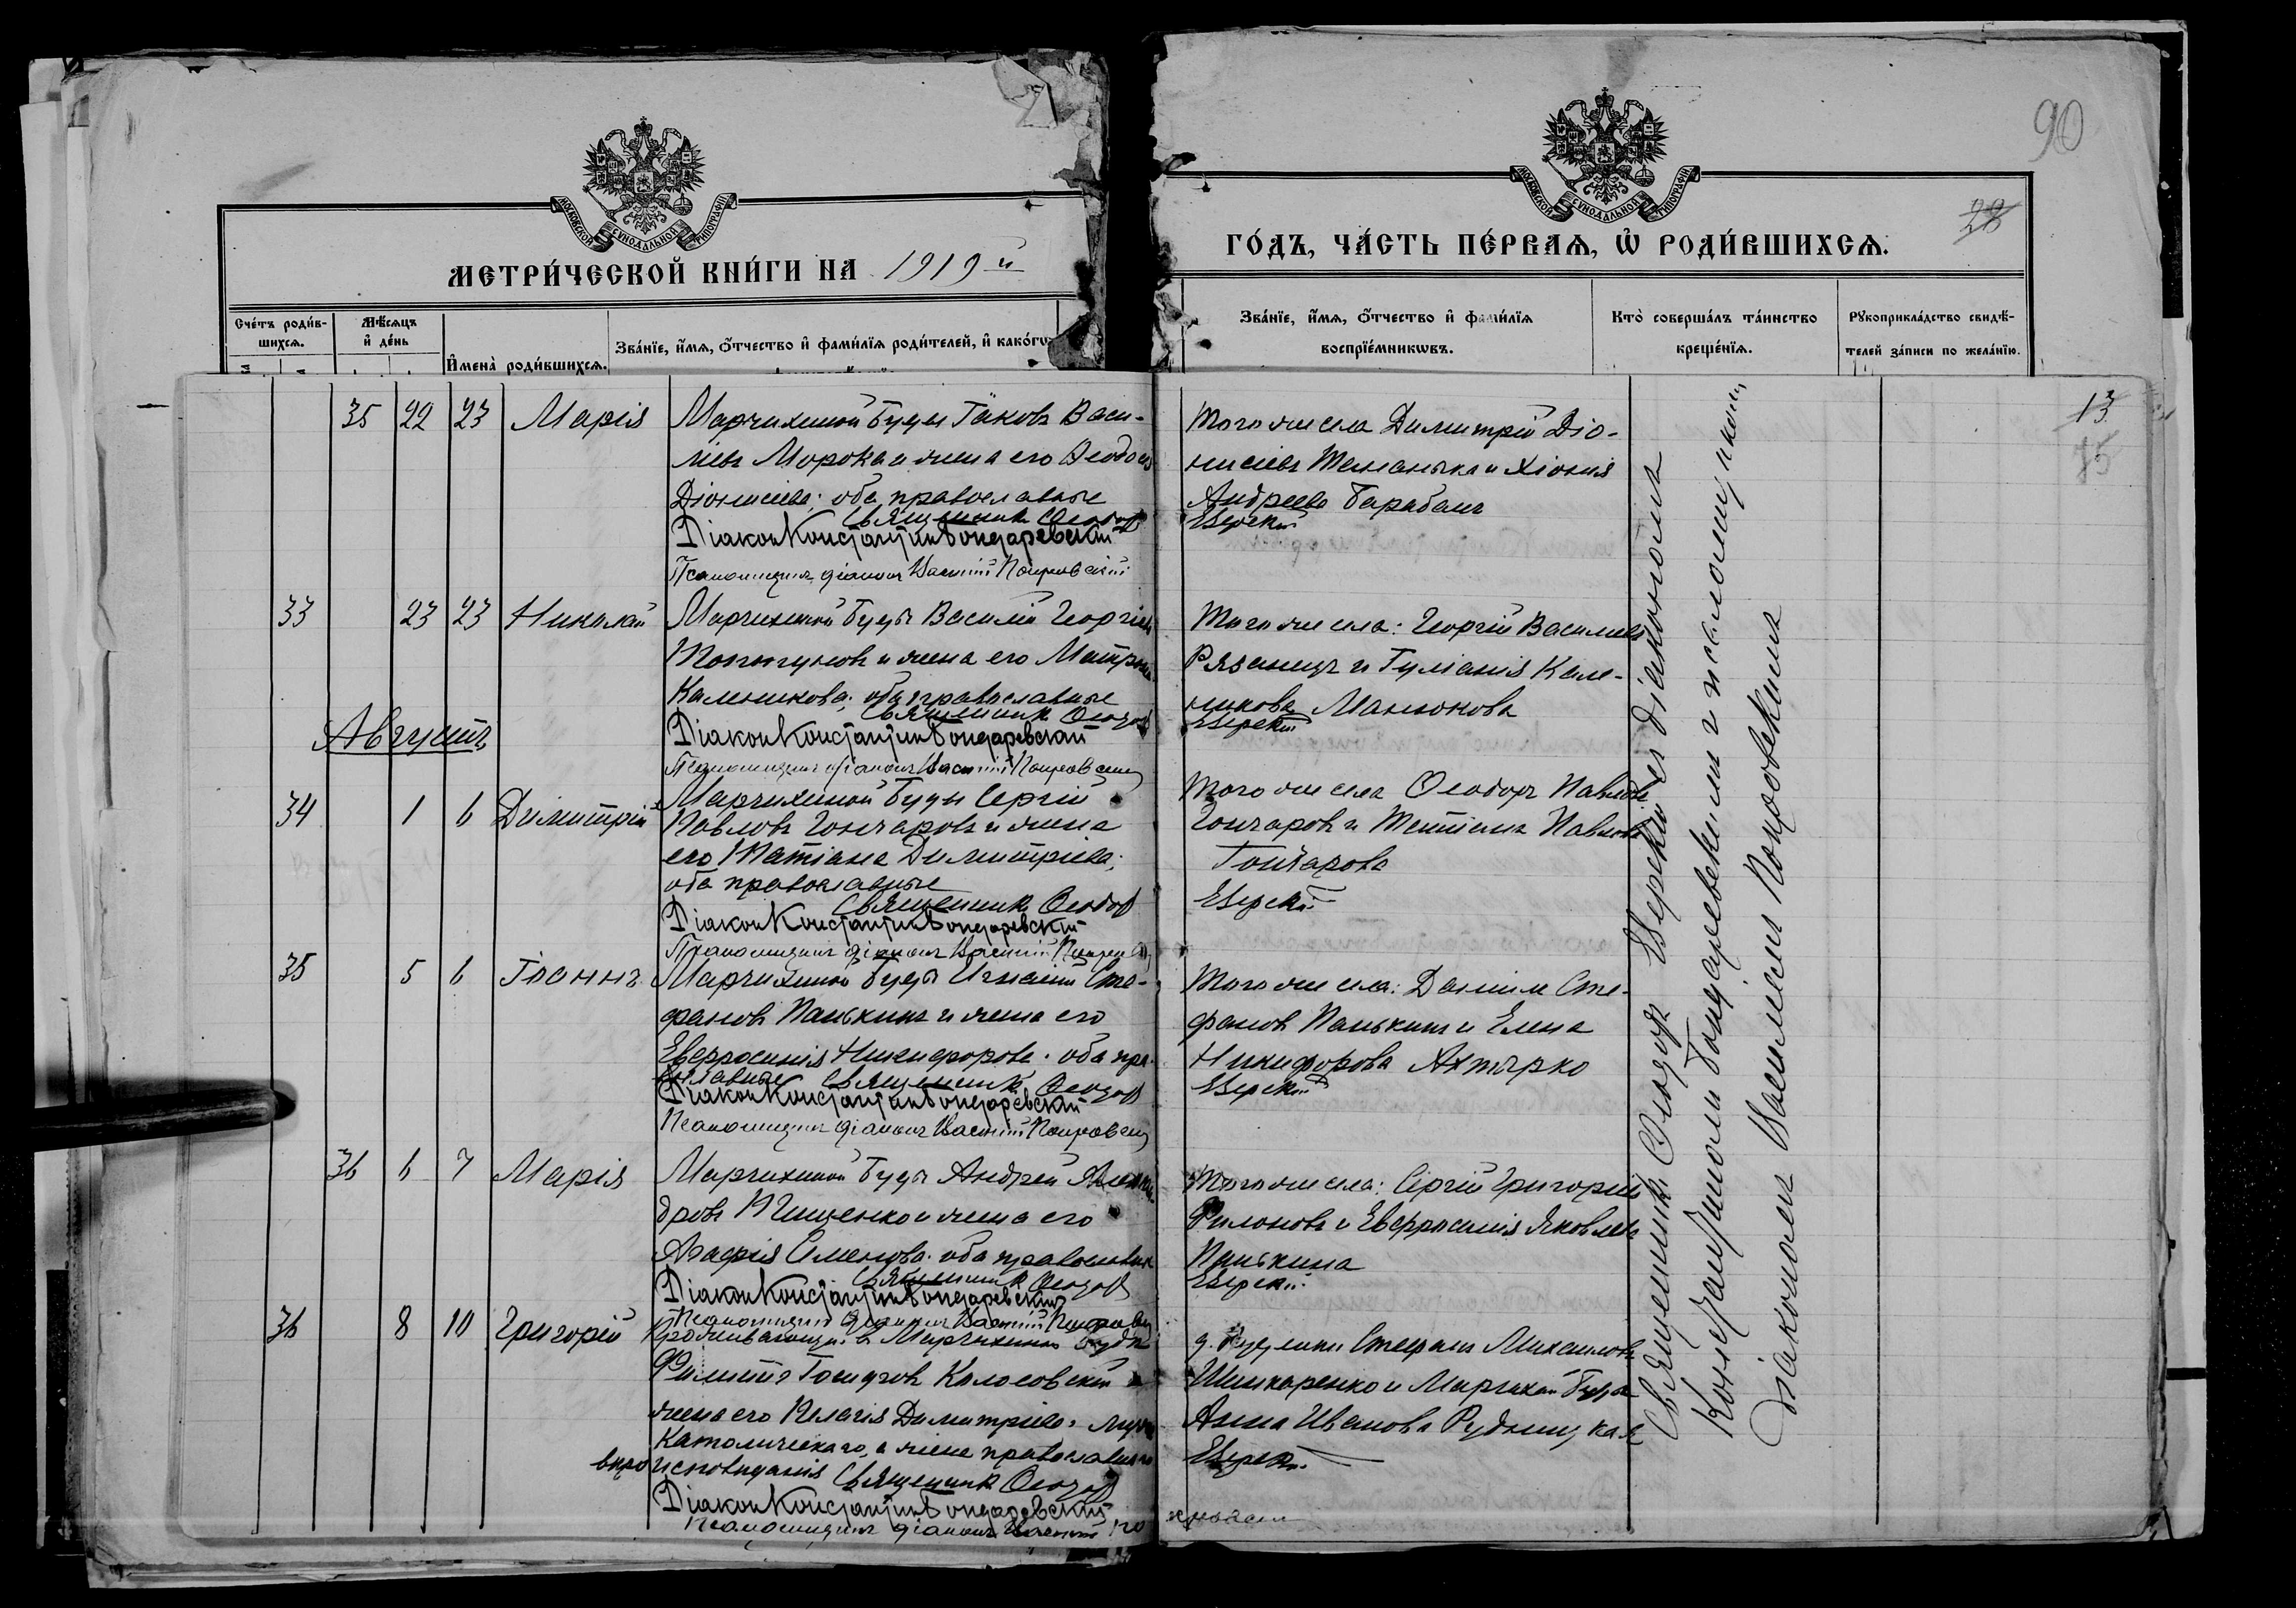 90
28
МОСКОВСКОЙ СУНОДАЛЬНОЙ ТИПОГРАФІИ
МОСКОВСКОЙ СУНОДАЛЬНОЙ ТИПОГРАФІИ
МЕТРИ́ЧЕСКОЙ КНИ́ГИ НА 1919 й
ГО́ДЪ, ЧА́СТЬ ПЕ́РВАѦ, Ѿ РОДИ́ВШИХСѦ.
Сче́тъ роди́вшихсѧ.
Мѣ́сѧцъ и҆ де́нь
И҆мена̀ роди́вшихсѧ.
Зва́нїе, и҆́мѧ, ѻ҆́тчество и҆ фами́лїѧ роди́телей, и҆ како́гѡ
Зва́нїе, и҆́мѧ, ѻ҆́тчество и҆ фами́лїѧ воспрїе́мникѡвъ.
Кто̀ соверша́лъ та́инство креще́нїѧ.
Рꙋкоприкла́дство свидѣ́телей за́писи по жела́нїю.
13
35 22 23 Марія
Марчихиной Буды Іаковъ Васи-
ліевъ Морока и жена его Ѳеодосія
Діонисіева; оба православные
Священникъ Ѳеодоръ Езерскій
Діаконъ Константинъ Бондаревскій
Псаломщикъ діаконъ Василій Покровскій
Того же села Димитрій Діо-
нисіевъ и Хіонія
Андреева Барабашъ
33 23 23 Николай
Марчихиной Буды Василій Георгіевъ
и жена его Матрона
Калиникова; оба православные
Священникъ Ѳеодоръ Езерскій
Діаконъ Константинъ Бондаревскій
Псаломщикъ діаконъ Василій Покровскій
Того же села: Георгій Васильевъ
Рязанецъ и Іуліанія Кали-
никова Манюкова
Августъ
34 1 6 Димитрій
Марчихиной Буды Сергій
Павловъ Гончаровъ и жена
его Татіана Димитріева;
оба православные
Священникъ Ѳеодоръ Езерскій
Діаконъ Константинъ Бондаревскій
Псаломщикъ діаконъ Василій Покровскій
Того же села Ѳеодоръ Павловъ
Гончаровъ и Татіана Павлова
Гончарова
35 5 6 Іоаннъ
Марчихиной Буды Игнатій Сте-
фановъ Панькинъ и жена его
Евфросинія Никифорова; оба пра-
вославные Священникъ Ѳеодоръ Езерскій
Діаконъ Константинъ Бондаревскій
Псаломщикъ діаконъ Василій Покровскій
Того же села: Даніилъ Сте-
фановъ Панькинъ и Елена
Никифорова Ахтырко
36 6 7 Марія
Марчихиной Буды Андрей Алексан-
дровъ Пищенко и жена его
Агафія Семенова; оба православные
Священникъ Ѳеодоръ Езерскій
Діаконъ Константинъ Бондаревскій
Псаломщикъ діаконъ Василій Покровскій
Того же села: Сергій Григоріевъ
Филоновъ и Евфросинія Яковлева
Панькина
36 8 10 Григорій
Проживающій въ Марчихиной Будѣ
Филиппъ Іосифовъ Колосовскій и
жена его Пелагія Димитріева; мужъ
католическаго, а жена православнаго
вѣроисповѣданія Священникъ Ѳеодоръ Езерскій
Діаконъ Константинъ Бондаревскій
Псаломщикъ діаконъ Василій Покровскій
Стефанъ Михаиловъ
Шинкаренко и Марчихиной Буды
Анна Иванова Рудницкая
Священникъ Ѳеодоръ Езерскій съ діакономъ
Константиномъ Бондаревскимъ и псаломщикомъ
діакономъ Василіемъ Покровскимъ